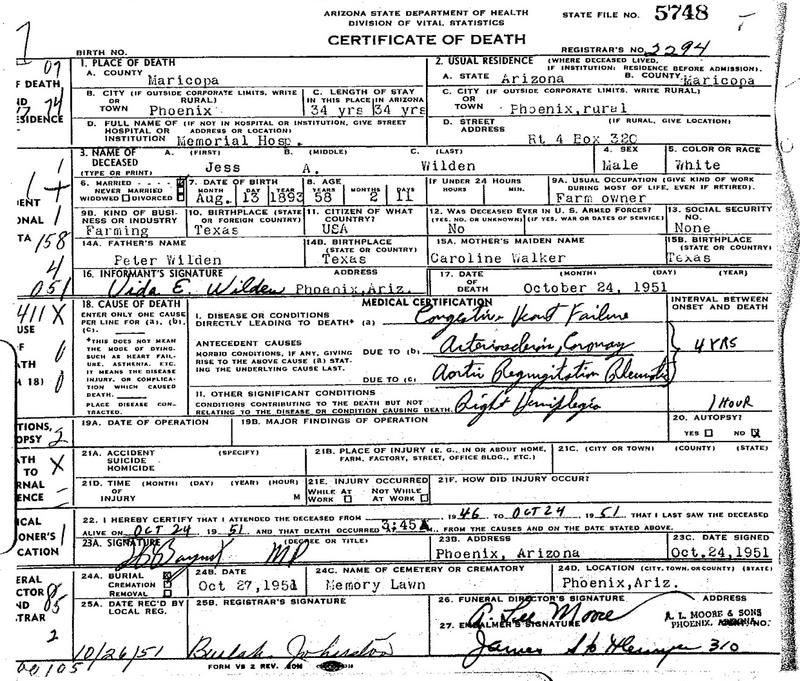 ARIZONA STATE DEPARTMENT OF HEALTH
DIVISION OF VITAL STATISTICS
STATE FILE NO. 5748
CERTIFICATE OF DEATH
BIRTH NO.
REGISTRAR'S NO. 3294
1. PLACE OF DEATH
A. COUNTY Maricopa
2. USUAL RESIDENCE (WHERE DECEASED LIVED. IF INSTITUTION: RESIDENCE BEFORE ADMISSION).
A. STATE Arizona B. COUNTY Maricopa
B. CITY (IF OUTSIDE CORPORATE LIMITS, WRITE RURAL) OR TOWN Phoenix
C. LENGTH OF STAY IN THIS PLACE 34 yrs IN ARIZONA 34 yrs
C. CITY (IF OUTSIDE CORPORATE LIMITS, WRITE RURAL) OR TOWN Phoenix, rural
D. FULL NAME OF (IF NOT IN HOSPITAL OR INSTITUTION, GIVE STREET ADDRESS OR LOCATION) HOSPITAL OR INSTITUTION Memorial Hosp.
D. STREET ADDRESS (IF RURAL, GIVE LOCATION) Rt 4 Box 320
3. NAME OF DECEASED (TYPE OR PRINT) A. (FIRST) Jess B. (MIDDLE) A. C. (LAST) Wilden
4. SEX Male
5. COLOR OR RACE White
6. MARRIED NEVER MARRIED WIDOWED DIVORCED
7. DATE OF BIRTH MONTH Aug. DAY 13 YEAR 1893
8. AGE YEARS 58 MONTHS 2 DAYS 11
IF UNDER 24 HOURS HOURS MIN.
9A. USUAL OCCUPATION (GIVE KIND OF WORK DURING MOST OF LIFE, EVEN IF RETIRED). Farm owner
9B. KIND OF BUSINESS OR INDUSTRY Farming
10. BIRTHPLACE (STATE OR FOREIGN COUNTRY) Texas
11. CITIZEN OF WHAT COUNTRY? USA
12. WAS DECEASED EVER IN U. S. ARMED FORCES? (YES, NO, OR UNKNOWN) (IF YES, WAR OR DATES OF SERVICE) No
13. SOCIAL SECURITY NO. None
14A. FATHER'S NAME Peter Wilden
14B. BIRTHPLACE (STATE OR COUNTRY) Texas
15A. MOTHER'S MAIDEN NAME Caroline Walker
15B. BIRTHPLACE (STATE OR COUNTRY) Texas
16. INFORMANT'S SIGNATURE Vida E. Wilden ADDRESS Phoenix, Ariz.
17. DATE OF DEATH (MONTH) (DAY) (YEAR) October 24, 1951
MEDICAL CERTIFICATION
INTERVAL BETWEEN ONSET AND DEATH
18. CAUSE OF DEATH
ENTER ONLY ONE CAUSE PER LINE FOR (a), (b), (c).
*THIS DOES NOT MEAN THE MODE OF DYING, SUCH AS HEART FAILURE, ASTHENIA, ETC. IT MEANS THE DISEASE, INJURY, OR COMPLICATION WHICH CAUSED DEATH.
PLACE DISEASE CONTRACTED.
I. DISEASE OR CONDITIONS DIRECTLY LEADING TO DEATH* (a) Congestive Heart Failure
ANTECEDENT CAUSES
MORBID CONDITIONS, IF ANY, GIVING RISE TO THE ABOVE CAUSE (a) STATING THE UNDERLYING CAUSE LAST.
DUE TO (b) Coronary
DUE TO (c) Aortic Regurgitation
4 YRS
II. OTHER SIGNIFICANT CONDITIONS
CONDITIONS CONTRIBUTING TO THE DEATH BUT NOT RELATING TO THE DISEASE OR CONDITION CAUSING DEATH. Right Hemiplegia 1 HOUR
19A. DATE OF OPERATION
19B. MAJOR FINDINGS OF OPERATION
20. AUTOPSY? YES NO X
21A. ACCIDENT SUICIDE HOMICIDE (SPECIFY)
21B. PLACE OF INJURY (E. G., IN OR ABOUT HOME, FARM, FACTORY, STREET, OFFICE BLDG., ETC.)
21C. (CITY OR TOWN) (COUNTY) (STATE)
21D. TIME OF INJURY (MONTH) (DAY) (YEAR) (HOUR) M
21E. INJURY OCCURRED WHILE AT WORK NOT WHILE AT WORK
21F. HOW DID INJURY OCCUR?
22. I HEREBY CERTIFY THAT I ATTENDED THE DECEASED FROM 1946 TO OCT 24 1951 THAT I LAST SAW THE DECEASED
ALIVE ON OCT 24 1951 AND THAT DEATH OCCURRED 3:45 A M., FROM THE CAUSES AND ON THE DATE STATED ABOVE.
23A. SIGNATURE (DEGREE OR TITLE) MD
23B. ADDRESS Phoenix, Arizona
23C. DATE SIGNED Oct.24,1951
24A. BURIAL CREMATION REMOVAL
24B. DATE Oct 27,1951
24C. NAME OF CEMETERY OR CREMATORY Memory Lawn
24D. LOCATION (CITY, TOWN, OR COUNTY) (STATE) Phoenix,Ariz.
25A. DATE REC'D BY LOCAL REG. 10/26/51
25B. REGISTRAR'S SIGNATURE Beulah Johnston
26. FUNERAL DIRECTOR'S SIGNATURE A. Lee Moore ADDRESS A. L. MOORE & SONS PHOENIX, ARIZONA
27. EMBALMER'S SIGNATURE James 310
FORM VS 2 REV.